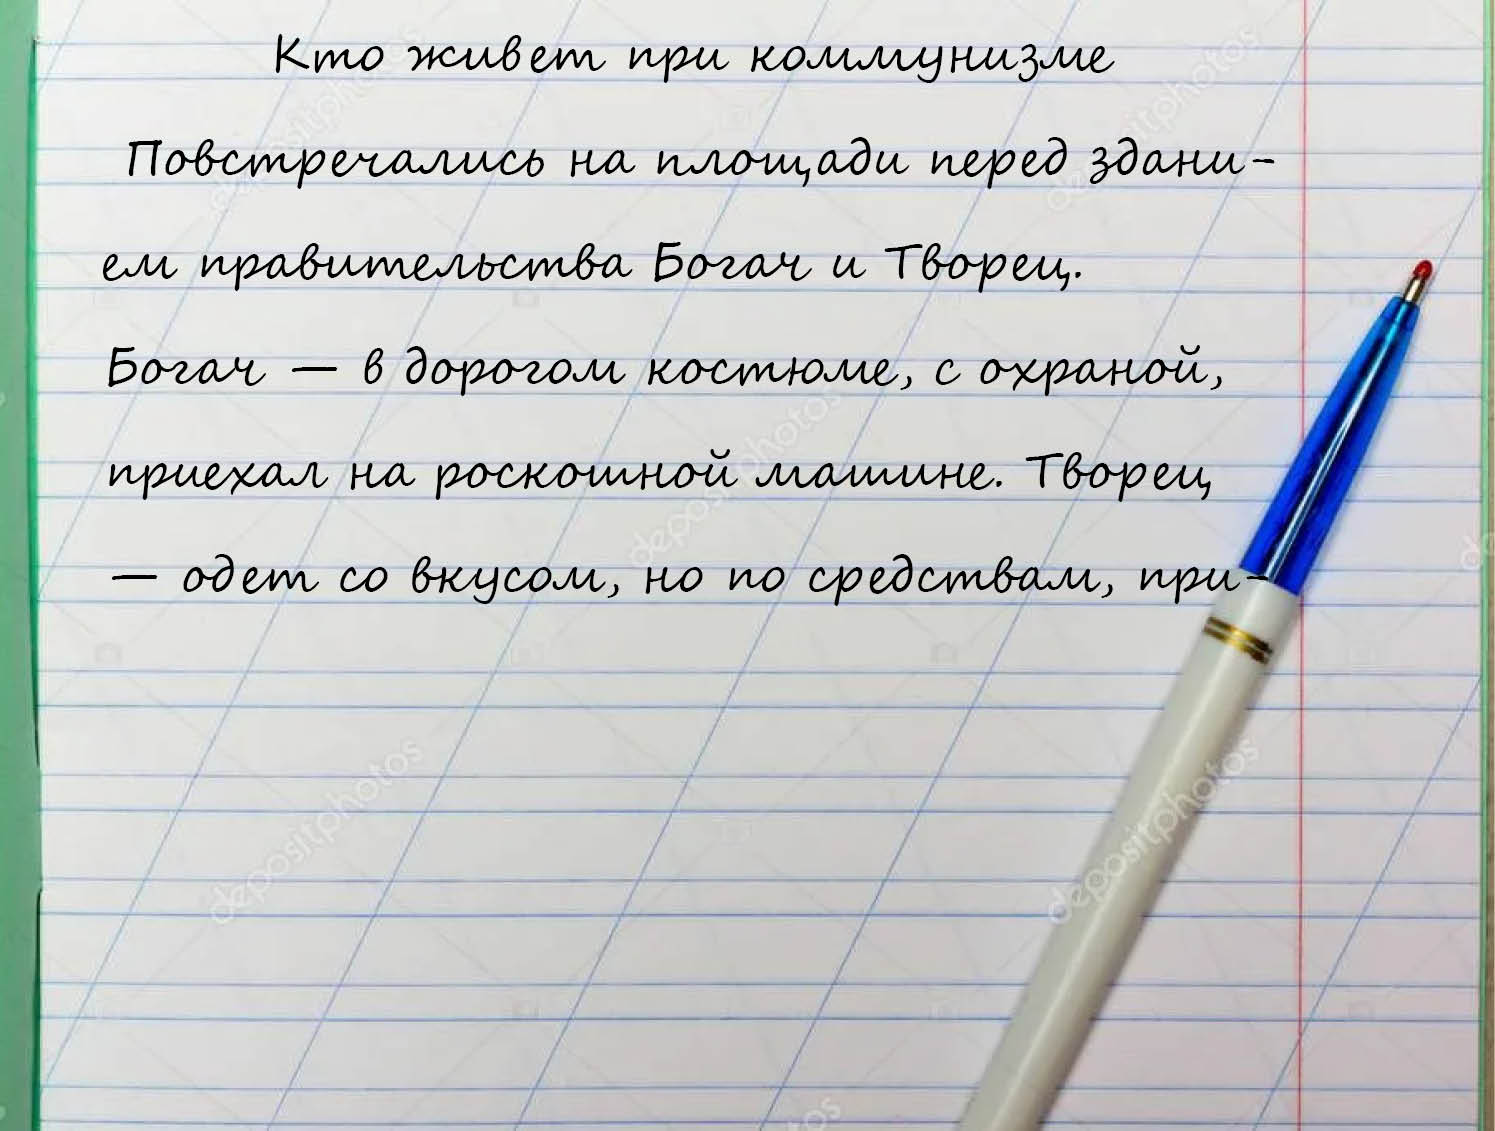 Кто живет при коммунизме
Повстречались на площади перед здани-
ем правительства Богач и Творец.
Богач — в дорогом костюме, с охраной,
приехал на роскошной машине. Творец
— одет со вкусом, но по средствам, при-
depositphotos
depositphotos
depositphotos
depositphotos
depositphotos
depositphotos